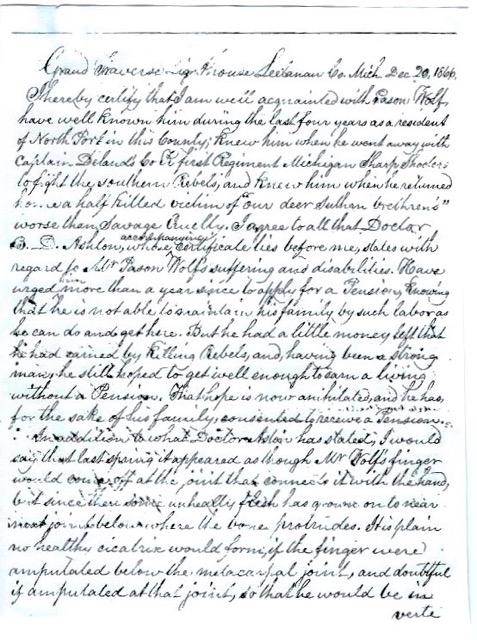 Grand Traverse Light house Leelanau Co. Mich Dec 20, 1866.
I hereby certify that I am well acquainted with Payson Wolf,
have well known him during the last four years as a resident
of North Port in this County; knew him when he went away with
Captain Delands Co K first Regiment Michigan Sharp Shooters
to fight the southern Rebels, and knew him when he returned
home a half killed victim of "our deer Suthun brethren's"
worse than Savage Cruelty. I agree to all that Doctor
B. D. Ashton, whose accompanying certificate lies before me, states with
regard to Mr Payson Wolf's suffering and disabilities. Have
urged him more than a year since to apply for a Pension, knowing
that he is not able to maintain his family by such labor as
he can do and get here. But he had a little money left that
he had earned by Killing Rebels, and, having been a strong
man, he still hoped to get well enough to earn a living
without a Pension. That hope is now anihilated, and he has,
for the sake of his family, consented to receive a Pension.
In addition to what Doctor Ashton has stated, I would
say, that last spring it appeared as though Mr Wolf's finger
would come off at the joint that connects it with the hand,
but since then some unhealthy flesh has grown on to near
next joint below where the bone protrudes. It is plain
no healthy cicatrix would form, if the finger were
amputated below the metacarpal joint, and doubtful
if amputated at that joint, so that he would be in
verte